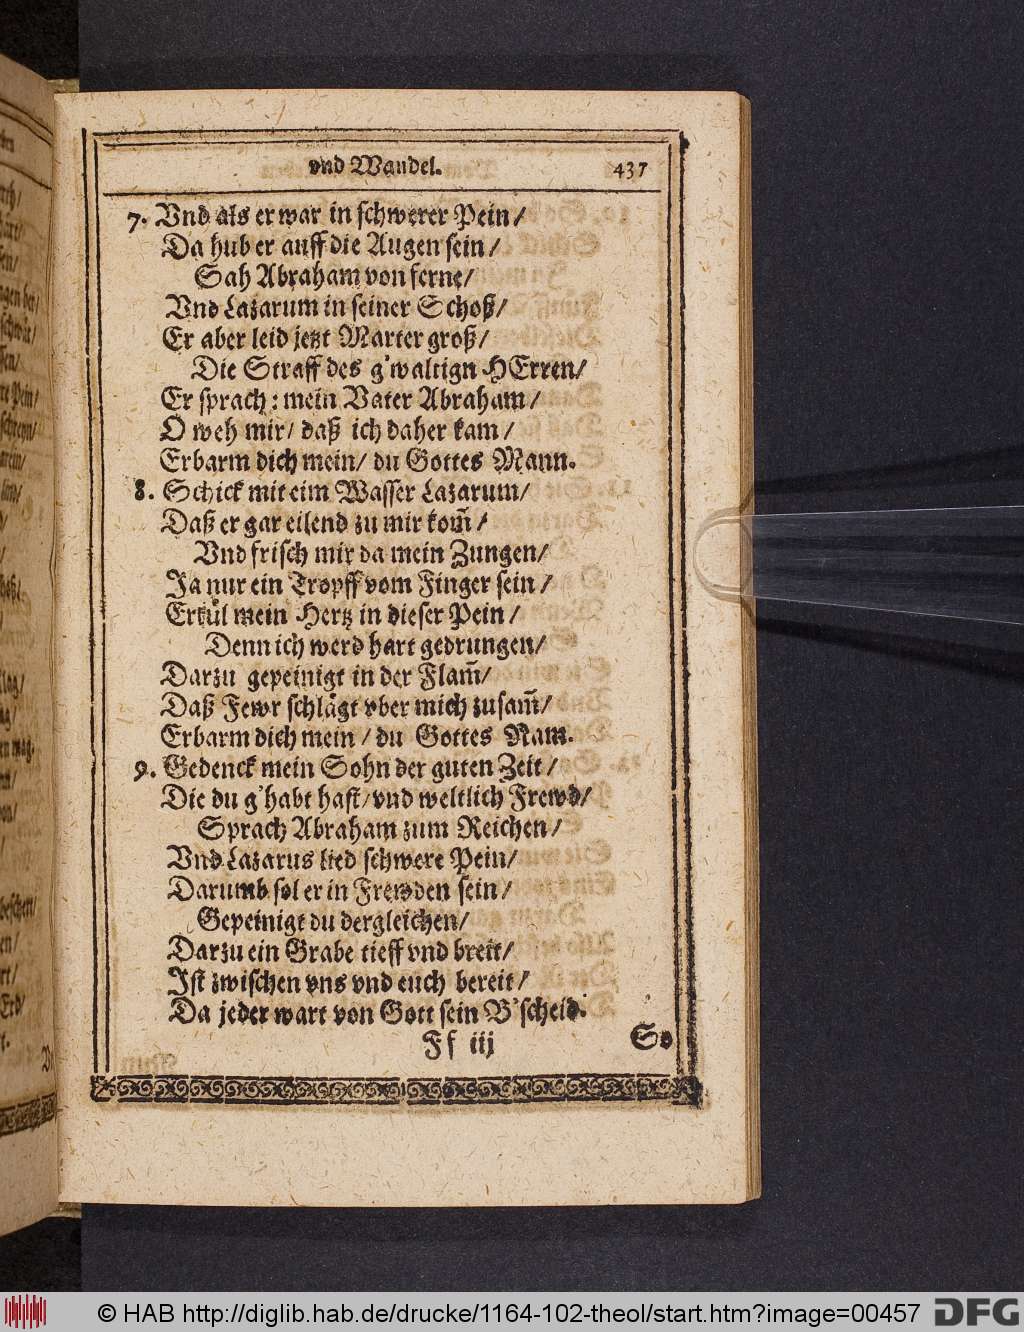 vnd Wandel. 437
7. Vnd als er war in schwerer Pein/
Da hub er auff die Augen sein/
Sah Abraham von ferne/
Vnd Lazarum in seiner Schoß/
Er aber leid jetzt Marter groß/
Die Straff des g'waltign HErren/
Er sprach: mein Vater Abraham/
O weh mir/ daß ich daher kam/
Erbarm dich mein/ du Gottes Mann.
8. Schick mit eim Wasser Lazarum/
Daß er gar eilend zu mir kom̃/
Vnd frisch mir da mein Zungen/
Ja nur ein Tropff vom Finger sein/
Erkül mein Hertz in dieser Pein/
Denn ich werd hart gedrungen/
Darzu gepeinigt in der Flam̃/
Daß Fewr schlägt vber mich zusam̃/
Erbarm dich mein/ du Gottes Nam.
9. Gedenck mein Sohn der guten Zeit/
Die du g'habt hast/ vnd weltlich Frewd/
Sprach Abraham zum Reichen/
Vnd Lazarus lied schwere Pein/
Darumb sol er in Frewden sein/
Gepeinigt du dergleichen/
Darzu ein Grabe tieff vnd breit/
Ist zwischen vns vnd euch bereit/
Da jeder wart von Gott sein B'scheid.
Ff iij So
© HAB http://diglib.hab.de/drucke/1164-102-theol/start.htm?image=00457 DFG